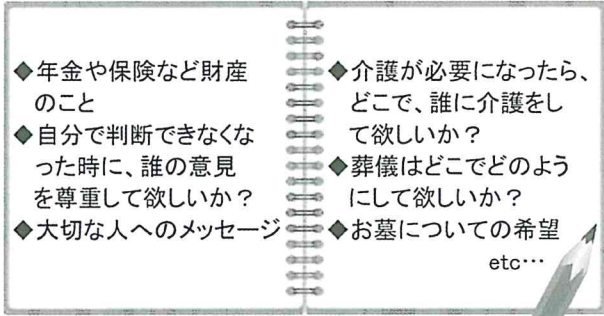 ◆年金や保険など財産
のこと
◆自分で判断できなくな
った時に、誰の意見
を尊重して欲しいか？
◆大切な人へのメッセージ
◆介護が必要になったら、
どこで、誰に介護をし
て欲しいか？
◆葬儀はどこでどのよう
にして欲しいか？
◆お墓についての希望
etc…